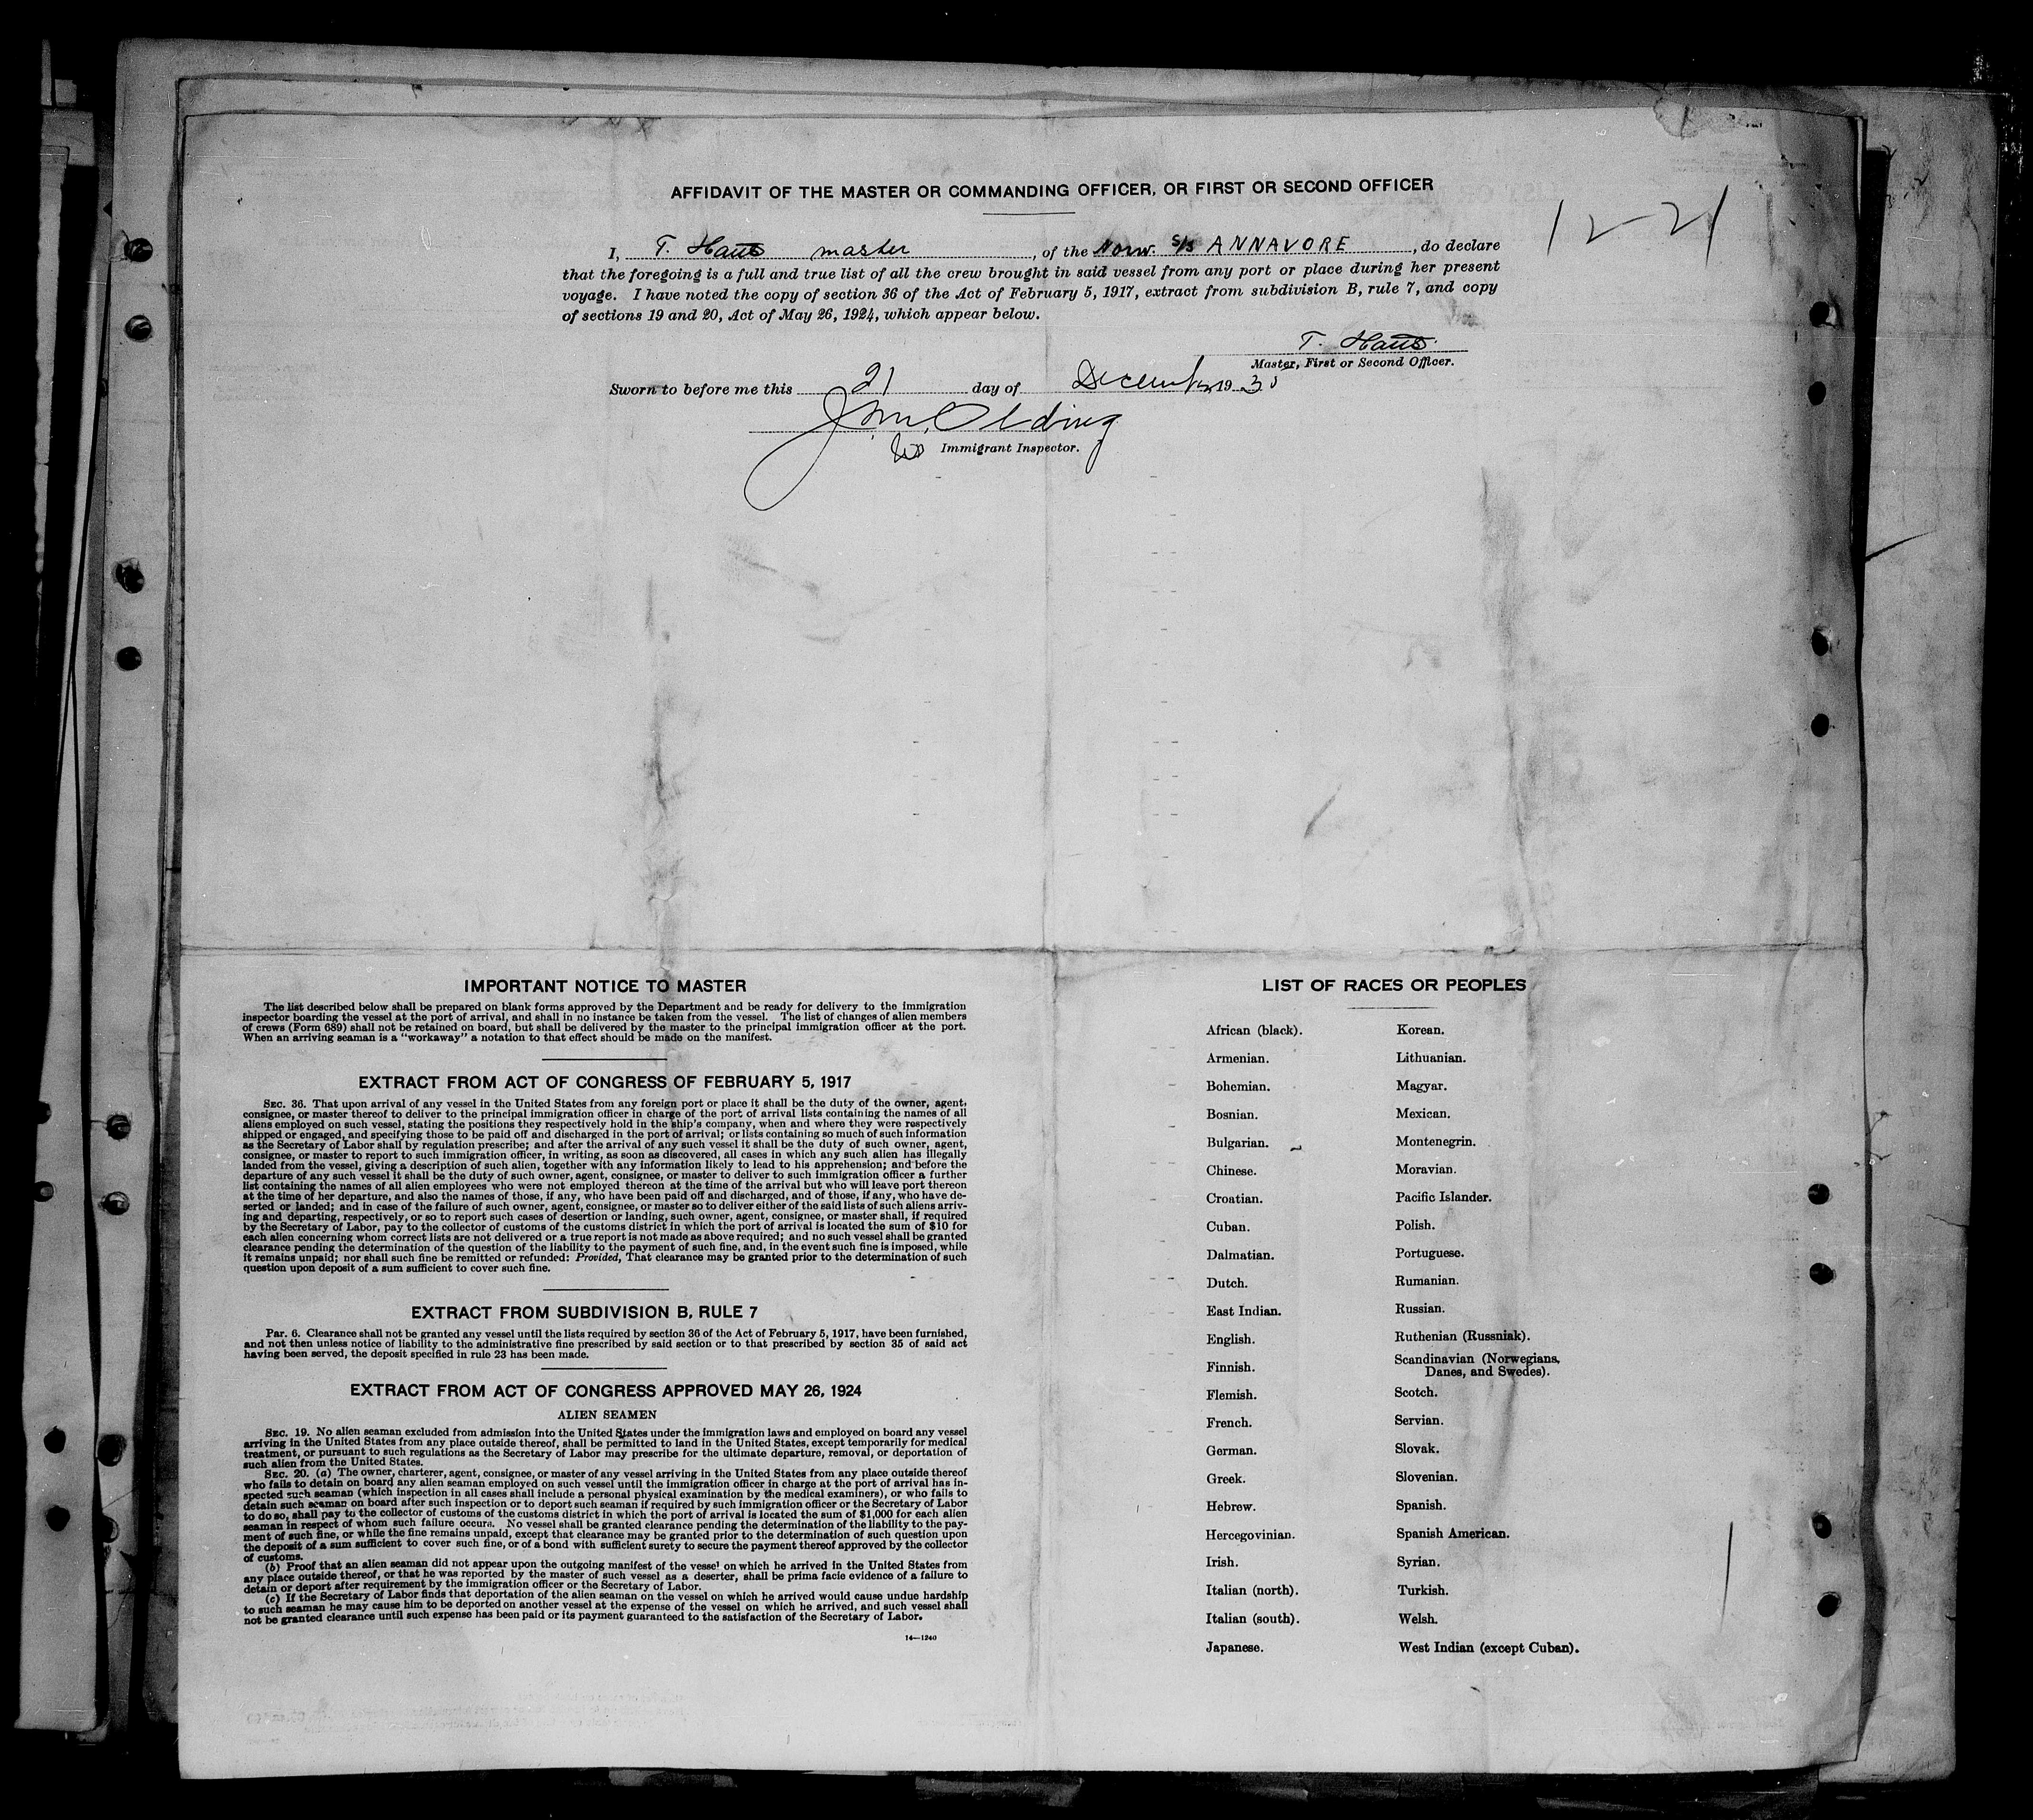 AFFIDAVIT OF THE MASTER OR COMMANDING OFFICER, OR FIRST OR SECOND OFFICER
12-21
I, T. master, of the Norw. S/S ANNAVORE, do declare
that the foregoing is a full and true list of all the crew brought in said vessel from any port or place during her present
voyage. I have noted the copy of section 36 of the Act of February 5, 1917, extract from subdivision B, rule 7, and copy
of sections 19 and 20, Act of May 26, 1924, which appear below.
T.
Master, First or Second Officer.
Sworn to before me this 21 day of December, 1930
J.M. Olding
Immigrant Inspector.
IMPORTANT NOTICE TO MASTER
The list described below shall be prepared on blank forms approved by the Department and be ready for delivery to the immigration
inspector boarding the vessel at the port of arrival, and shall in no instance be taken from the vessel. The list of changes of alien members
of crews (Form 689) shall not be retained on board, but shall be delivered by the master to the principal immigration officer at the port.
When an arriving seaman is a "workaway" a notation to that effect should be made on the manifest.
EXTRACT FROM ACT OF CONGRESS OF FEBRUARY 5, 1917
SEC. 36. That upon arrival of any vessel in the United States from any foreign port or place it shall be the duty of the owner, agent,
consignee, or master thereof to deliver to the principal immigration officer in charge of the port of arrival lists containing the names of all
aliens employed on such vessel, stating the positions they respectively hold in the ship's company, when and where they were respectively
shipped or engaged, and specifying those to be paid off and discharged in the port of arrival; or lists containing so much of such information
as the Secretary of Labor shall by regulation prescribe; and after the arrival of any such vessel it shall be the duty of such owner, agent,
consignee, or master to report to such immigration officer, in writing, as soon as discovered, all cases in which any such alien has illegally
landed from the vessel, giving a description of such alien, together with any information likely to lead to his apprehension; and before the
departure of any such vessel it shall be the duty of such owner, agent, consignee, or master to deliver to such immigration officer a further
list containing the names of all alien employees who were not employed thereon at the time of the arrival but who will leave port thereon
at the time of her departure, and also the names of those, if any, who have been paid off and discharged, and of those, if any, who have de-
serted or landed; and in case of the failure of such owner, agent, consignee, or master so to deliver either of the said lists of such aliens arriv-
ing and departing, respectively, or so to report such cases of desertion or landing, such owner, agent, consignee, or master shall, if required
by the Secretary of Labor, pay to the collector of customs of the customs district in which the port of arrival is located the sum of $10 for
each alien concerning whom correct lists are not delivered or a true report is not made as above required; and no such vessel shall be granted
clearance pending the determination of the question of the liability to the payment of such fine, and, in the event such fine is imposed, while
it remains unpaid; nor shall such fine be remitted or refunded: Provided, That clearance may be granted prior to the determination of such
question upon deposit of a sum sufficient to cover such fine.
EXTRACT FROM SUBDIVISION B, RULE 7
Par. 6. Clearance shall not be granted any vessel until the lists required by section 36 of the Act of February 5, 1917, have been furnished,
and not then unless notice of liability to the administrative fine prescribed by said section or to that prescribed by section 35 of said act
having been served, the deposit specified in rule 23 has been made.
EXTRACT FROM ACT OF CONGRESS APPROVED MAY 26, 1924
ALIEN SEAMEN
SEC. 19. No alien seaman excluded from admission into the United States under the immigration laws and employed on board any vessel
arriving in the United States from any place outside thereof, shall be permitted to land in the United States, except temporarily for medical
treatment, or pursuant to such regulations as the Secretary of Labor may prescribe for the ultimate departure, removal, or deportation of
such alien from the United States.
SEC. 20. (a) The owner, charterer, agent, consignee, or master of any vessel arriving in the United States from any place outside thereof
who fails to detain on board any alien seaman employed on such vessel until the immigration officer in charge at the port of arrival has in-
spected such seaman (which inspection in all cases shall include a personal physical examination by the medical examiners), or who fails to
detain such seaman on board after such inspection or to deport such seaman if required by such immigration officer or the Secretary of Labor
to do so, shall pay to the collector of customs of the customs district in which the port of arrival is located the sum of $1,000 for each alien
seaman in respect of whom such failure occurs. No vessel shall be granted clearance pending the determination of the liability to the pay-
ment of such fine, or while the fine remains unpaid, except that clearance may be granted prior to the determination of such question upon
the deposit of a sum sufficient to cover such fine, or of a bond with sufficient surety to secure the payment thereof approved by the collector
of customs.
(b) Proof that an alien seaman did not appear upon the outgoing manifest of the vessel on which he arrived in the United States from
any place outside thereof, or that he was reported by the master of such vessel as a deserter, shall be prima facie evidence of a failure to
detain or deport after requirement by the immigration officer or the Secretary of Labor.
(c) If the Secretary of Labor finds that deportation of the alien seaman on the vessel on which he arrived would cause undue hardship
to such seaman he may cause him to be deported on another vessel at the expense of the vessel on which he arrived, and such vessel shall
not be granted clearance until such expense has been paid or its payment guaranteed to the satisfaction of the Secretary of Labor.
14—1240
LIST OF RACES OR PEOPLES
African (black).
Armenian.
Bohemian.
Bosnian.
Bulgarian.
Chinese.
Croatian.
Cuban.
Dalmatian.
Dutch.
East Indian.
English.
Finnish.
Flemish.
French.
German.
Greek.
Hebrew.
Hercegovinian.
Irish.
Italian (north).
Italian (south).
Japanese.
Korean.
Lithuanian.
Magyar.
Mexican.
Montenegrin.
Moravian.
Pacific Islander.
Polish.
Portuguese.
Rumanian.
Russian.
Ruthenian (Russniak).
Scandinavian (Norwegians,
Danes, and Swedes).
Scotch.
Servian.
Slovak.
Slovenian.
Spanish.
Spanish American.
Syrian.
Turkish.
Welsh.
West Indian (except Cuban).